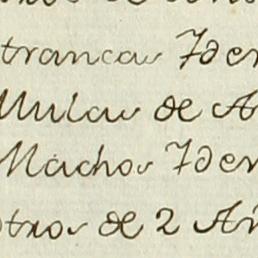 trancas Ydem
Mulas de A
Machos Ydem
otros de 2 Añ